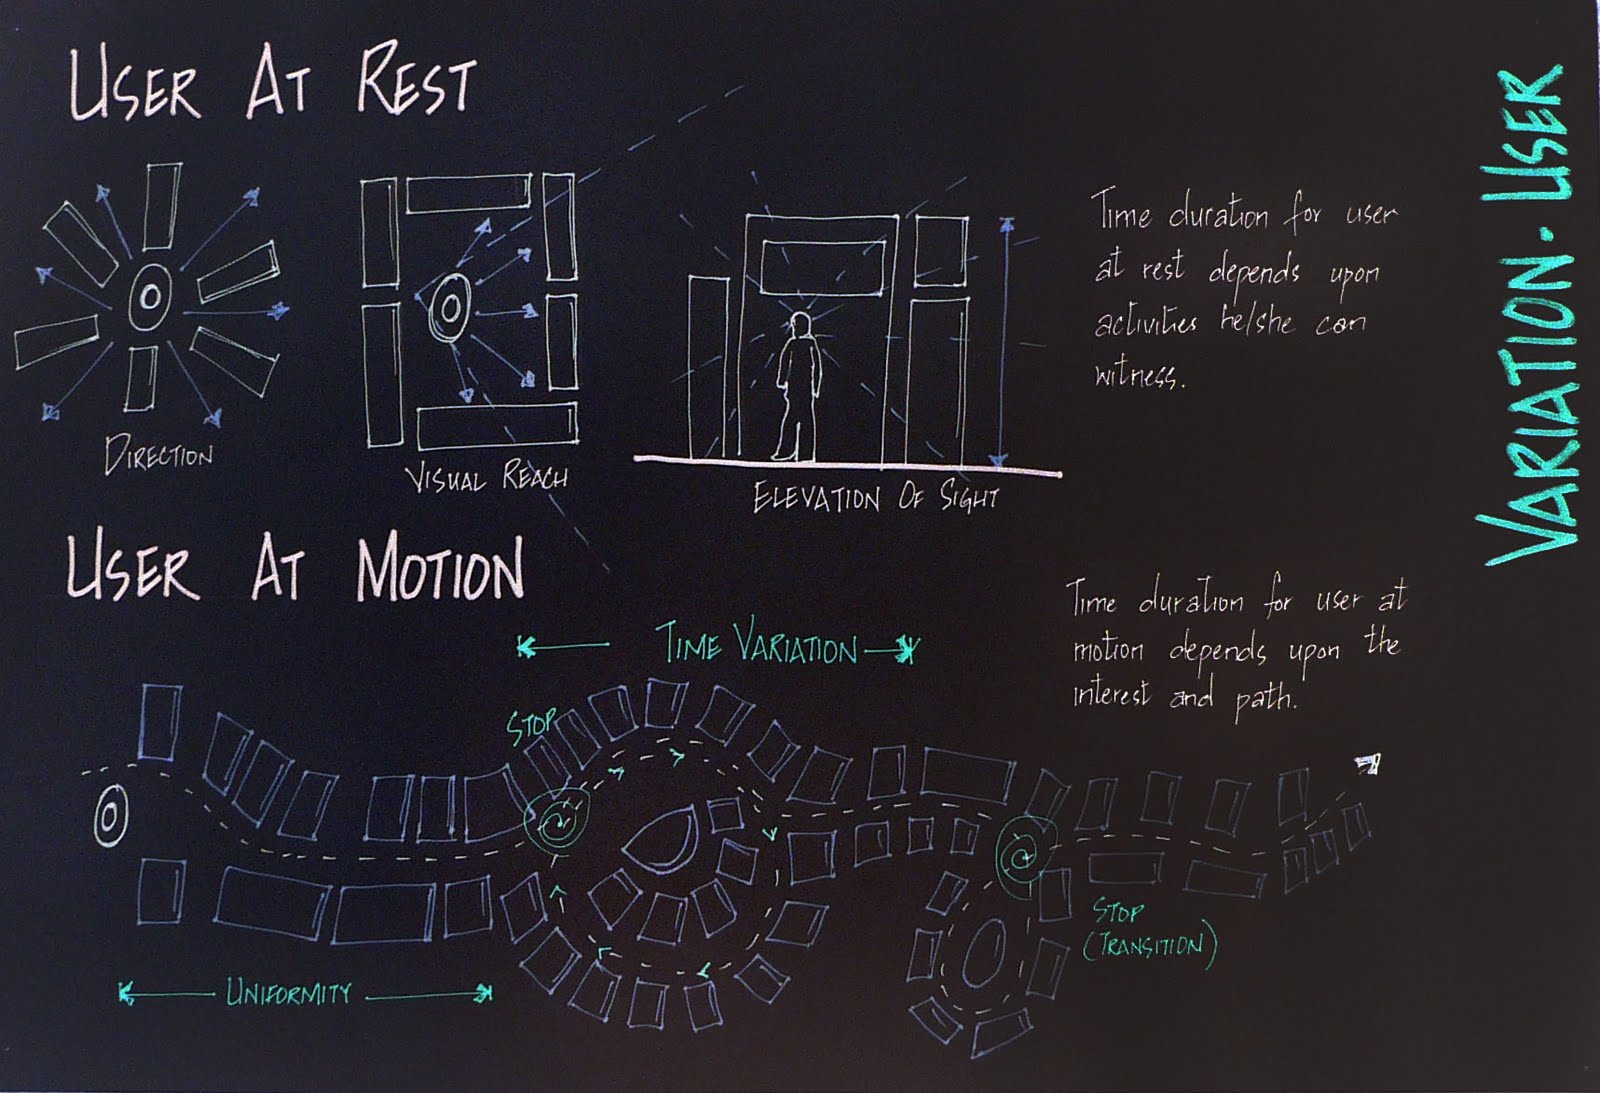 USER AT REST
DIRECTION
VISUAL REACH
ELEVATION OF SIGHT
Time duration for user
at rest depends upon
activities he/she can
witness.
VARIATION. USER
USER AT MOTION
TIME VARIATION
Time duration for user at
motion depends upon the
interest and path.
STOP
STOP
(TRANSITION)
UNIFORMITY